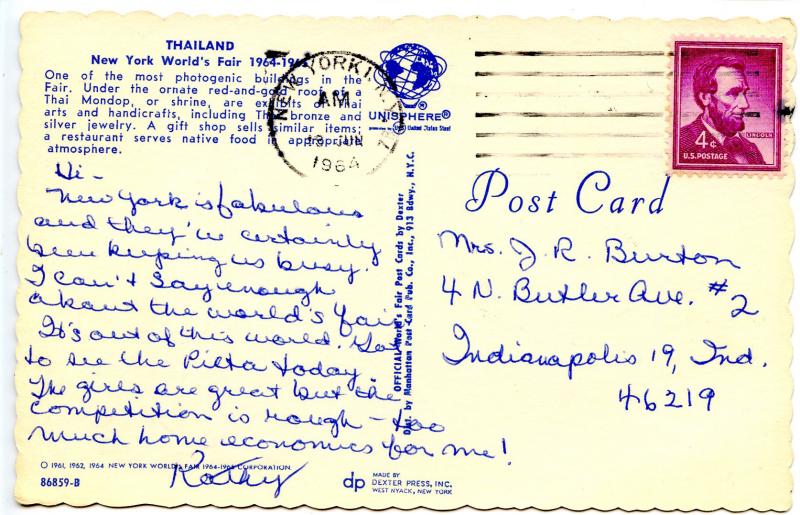 THAILAND
New York World's Fair 1964-1965
One of the most photogenic buildings in the
Fair. Under the ornate red-and-gold roof of a
Thai Mondop, or shrine, are exhibits of Thai
arts and handicrafts, including Thai bronze and
silver jewelry. A gift shop sells similar items;
a restaurant serves native food in appropriate
atmosphere.
UNISPHERE®
presented by USS United States Steel
NEW YORK, N.Y.
AM
19 JUN
1964
4¢
LINCOLN
U.S. POSTAGE
Hi -
New York is fabulous
and they've certainly
been keeping us busy.
I can't say enough
about the world's fair
It's out of this world. Got
to see the Pieta today.
The girls are great but the
competition is rough - too
much home economics for me!
Kathy
OFFICIAL World's Fair Post Cards by Dexter
Dist. by Manhattan Post Card Pub. Co., Inc., 913 Bdwy., N.Y.C.
Post Card
Mrs. J. R. Burton
4 N. Butler Ave. #2
Indianapolis 19, Ind.
46219
© 1961, 1962, 1964 NEW YORK WORLD'S FAIR 1964-1965 CORPORATION.
86859-B
dp
MADE BY
DEXTER PRESS, INC.
WEST NYACK, NEW YORK